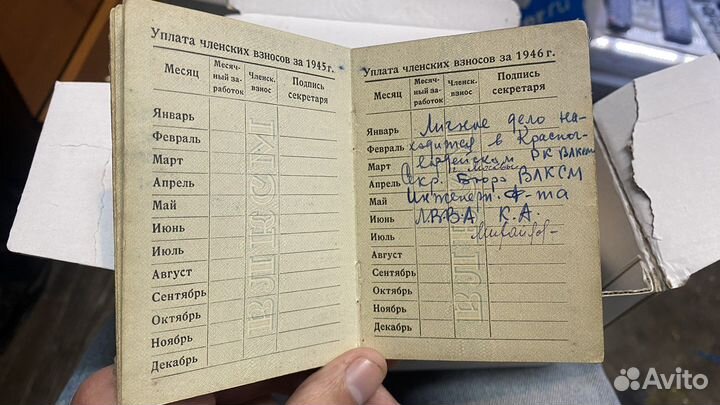 Уплата членских взносов за 1945 г.
Месяц
Месяч-
ный за-
работок
Членск.
взнос
Подпись
секретаря
Январь
Февраль
Март
Апрель
Май
Июнь
Июль
Август
Сентябрь
Октябрь
Ноябрь
Декабрь
ВЛКСМ
Уплата членских взносов за 1946 г.
Месяц
Месяч-
ный за-
работок
Членск.
взнос
Подпись
секретаря
Январь
Февраль
Март
Апрель
Май
Июнь
Июль
Август
Сентябрь
Октябрь
Ноябрь
Декабрь
Личное дело на-
ходится в Красног-
вардейском РК ВЛКСМ
г. Москвы
Секр. Бюро ВЛКСМ
Инженерн. ф-та
ЛВВА К.А.
ВЛКСМ
Avito